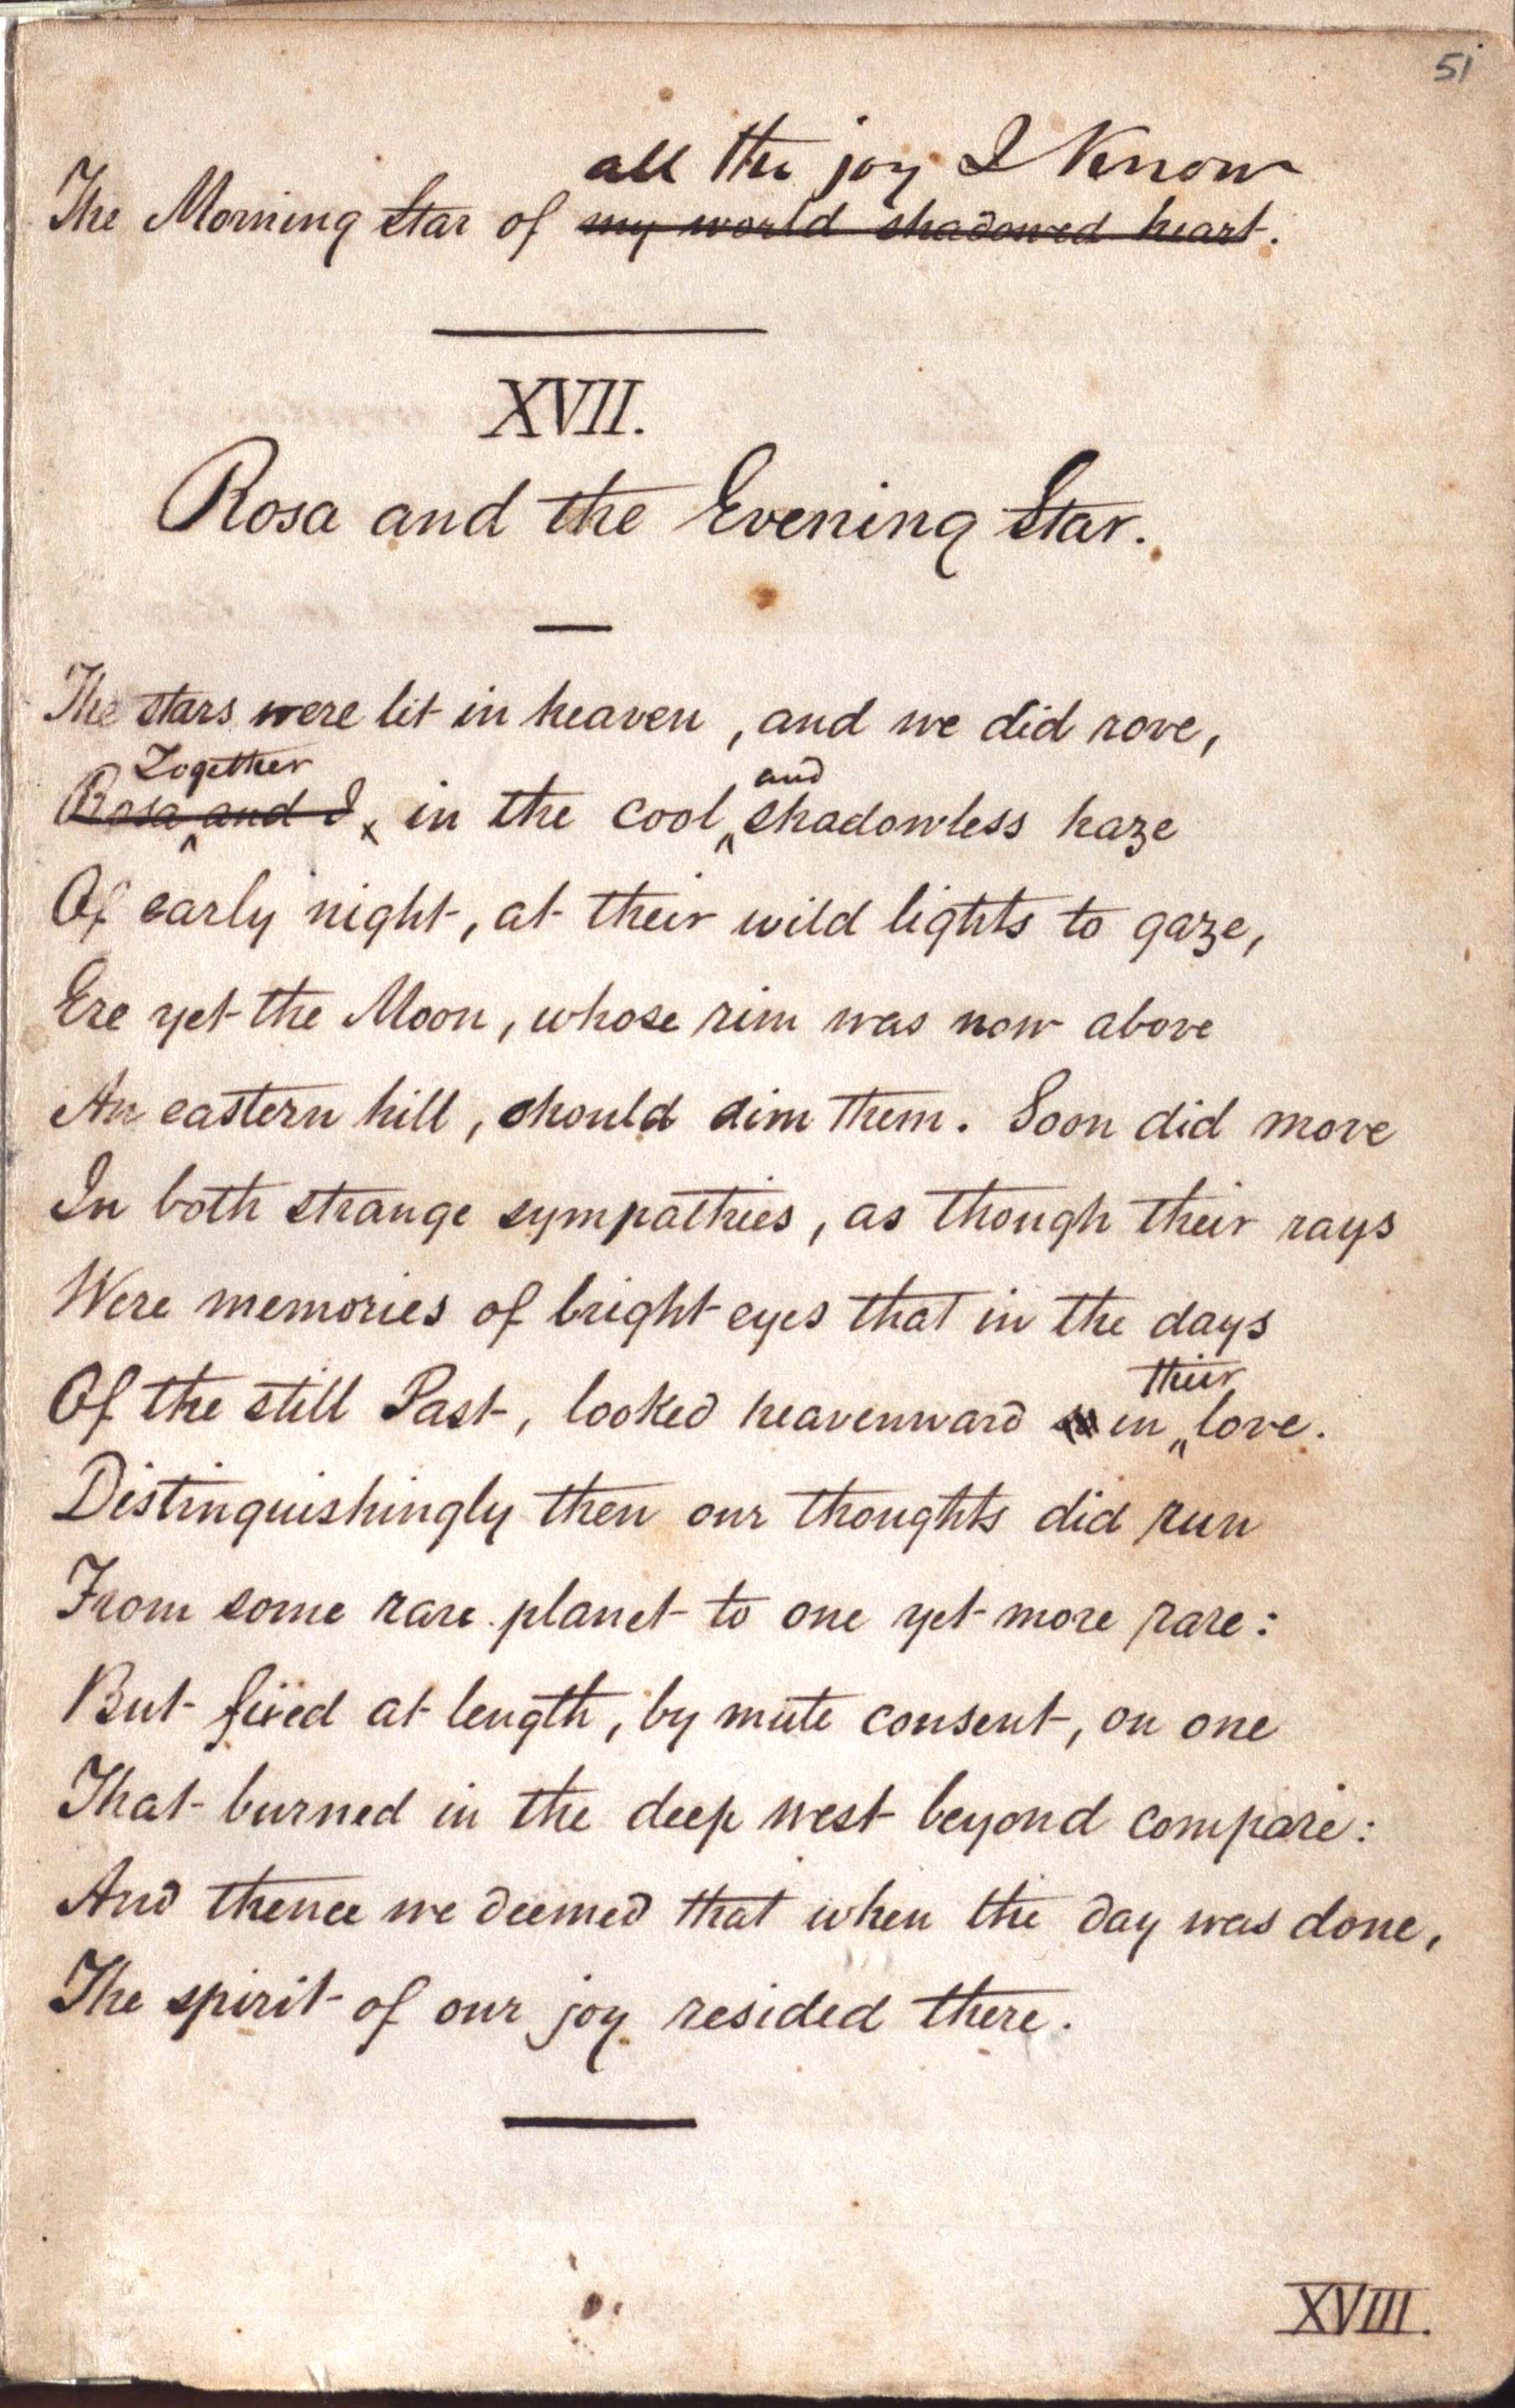 51
all the joy I Know
The Morning Star of my world shadowed heart.
XVII.
Rosa and the Evening Star.
The stars were lit in heaven, and we did rove,
Together and
Rosa and I x in the cool shadowless haze
Of early night, at their wild lights to gaze,
Ere yet the Moon, whose rim was now above
An eastern hill, should dim them. Soon did move
In both strange sympathies, as though their rays
Were memories of bright eyes that in the days
their
Of the still Past, looked heavenward in love.
Distinguishingly then our thoughts did run
From some rare planet to one yet more rare:
But fixed at length, by mute consent, on one
That burned in the deep west beyond compare:
And thence we deemed that when the day was done,
The spirit of our joy resided there.
XVIII.